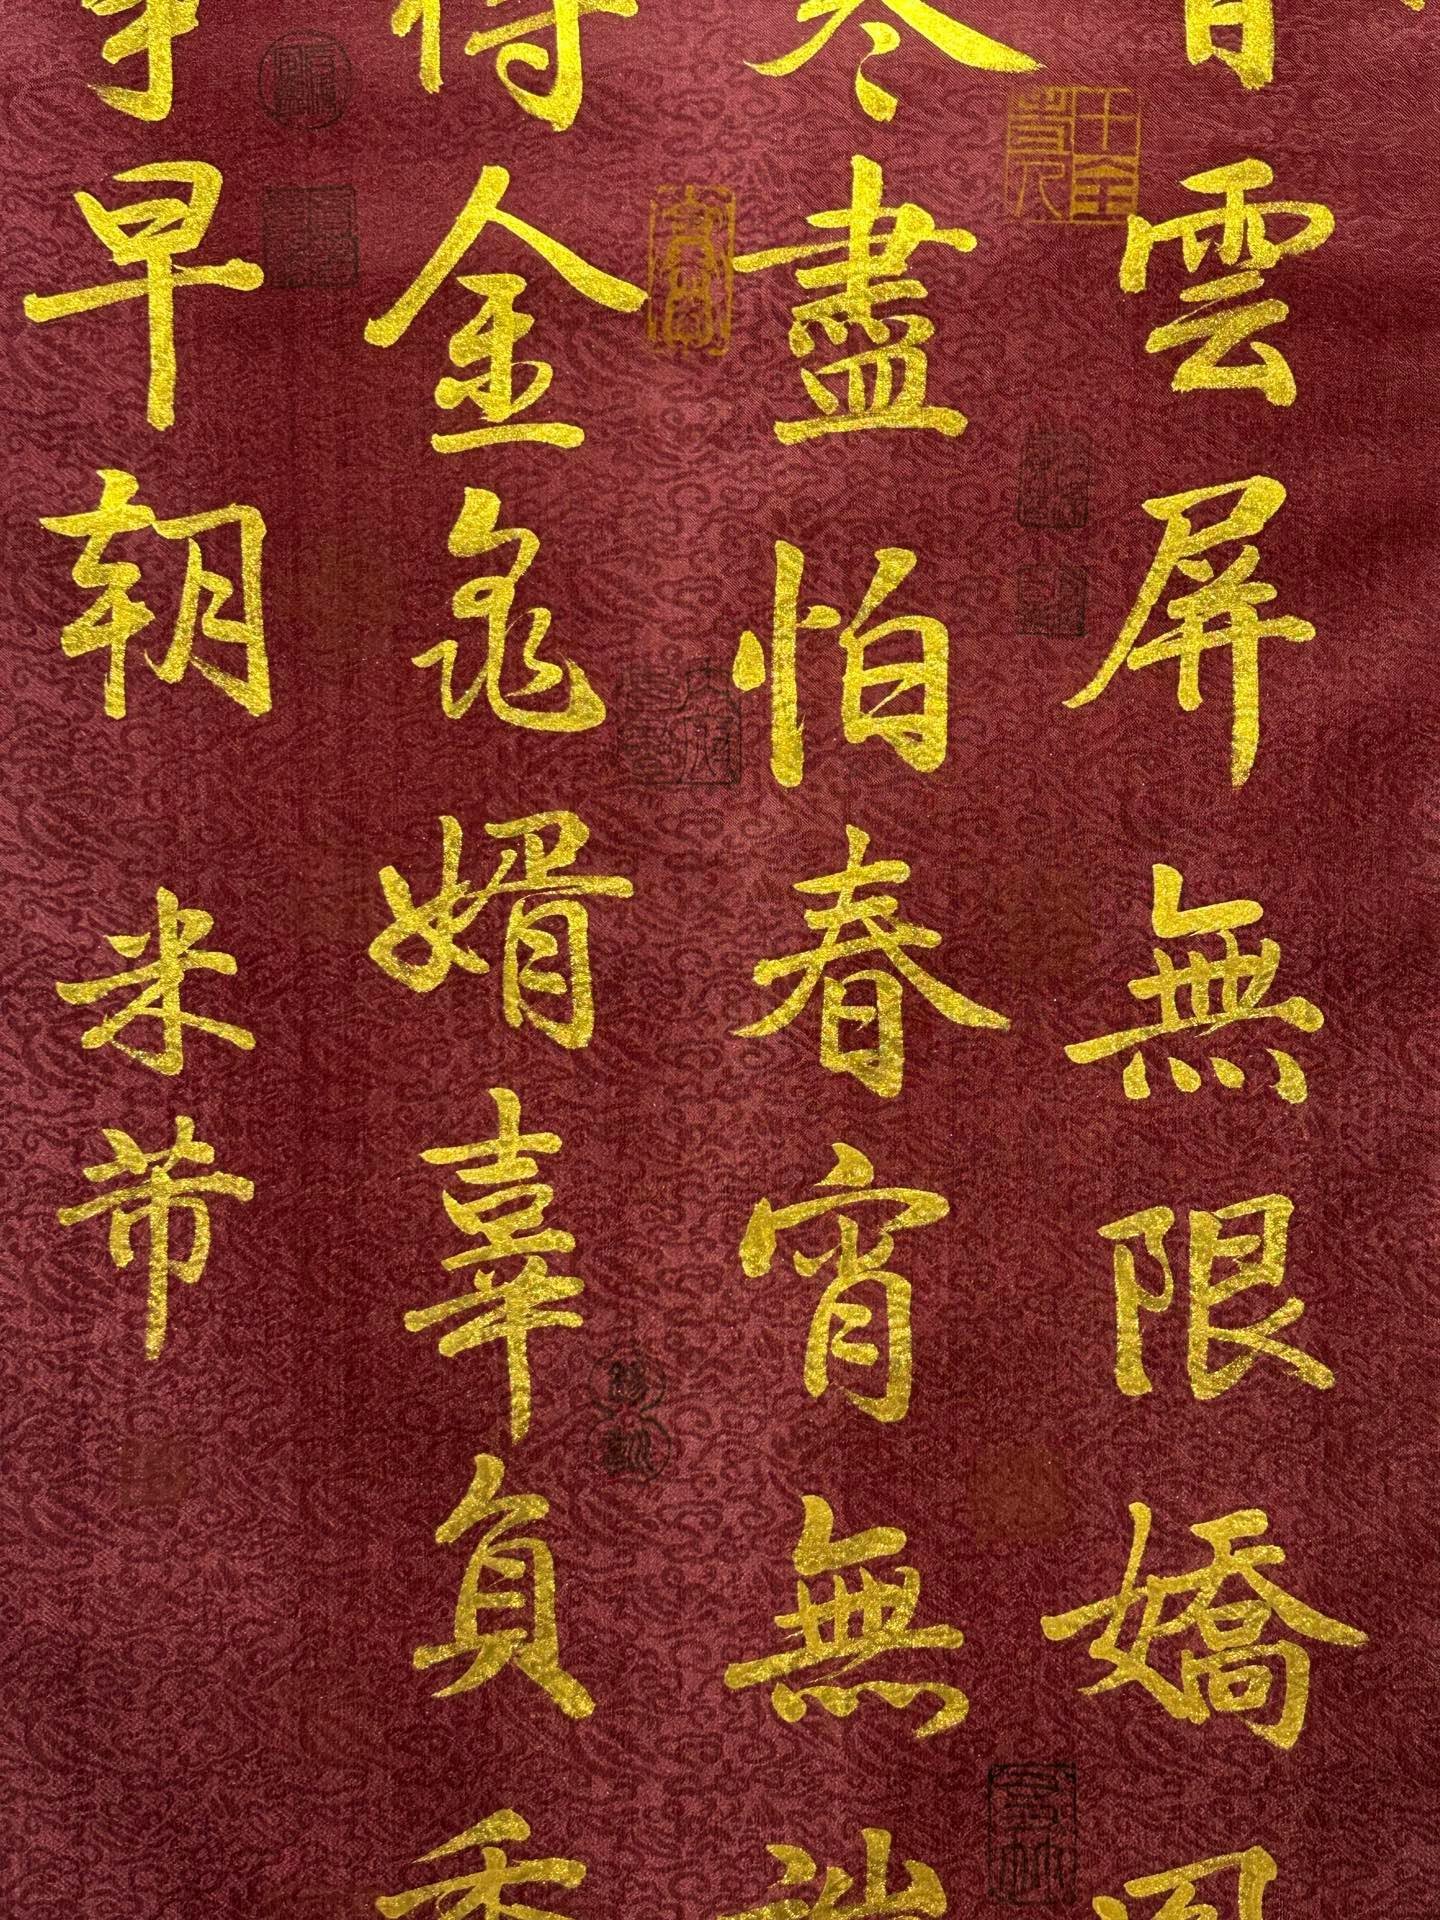 雲屏無限嬌
寒盡怕春宵無端
得金龜婿辜負香
事早朝 米芾